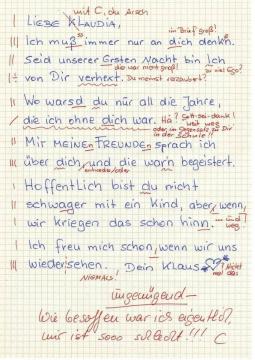 mit C, du Arsch
LIEBE KLAUDIA,
im Brief groß!
III Ich muß ss immer nur an dich denkn.
Seid unserer Ersten Nacht bin Ich
die war mort groß! zu viel Ego?
von Dir verhext. Du meinst verzaubert?
Wo warsd du nur all die Jahre,
die ich ohne dich war. Hä? Gott-sei-dank! weit weg
oder, im Gegensatz zu Dir in der Schule!!
II Mir MEINEN FREUNDEN sprach ich
III über dich, und die warn begeistert.
entweder/oder
I Hoffentlich bist du nicht
II schwager mit ein Kind, aber, wenn,
I wir kriegen das schon hinn. - und weg
I Ich freu mich schon, wenn wir uns
III wiedersehen. Dein Klaus
NIEMALS! ! Nicht mal das
ungenügend
Wie besoffen war ich eigentlich,
mir ist sooo schlecht!!! C